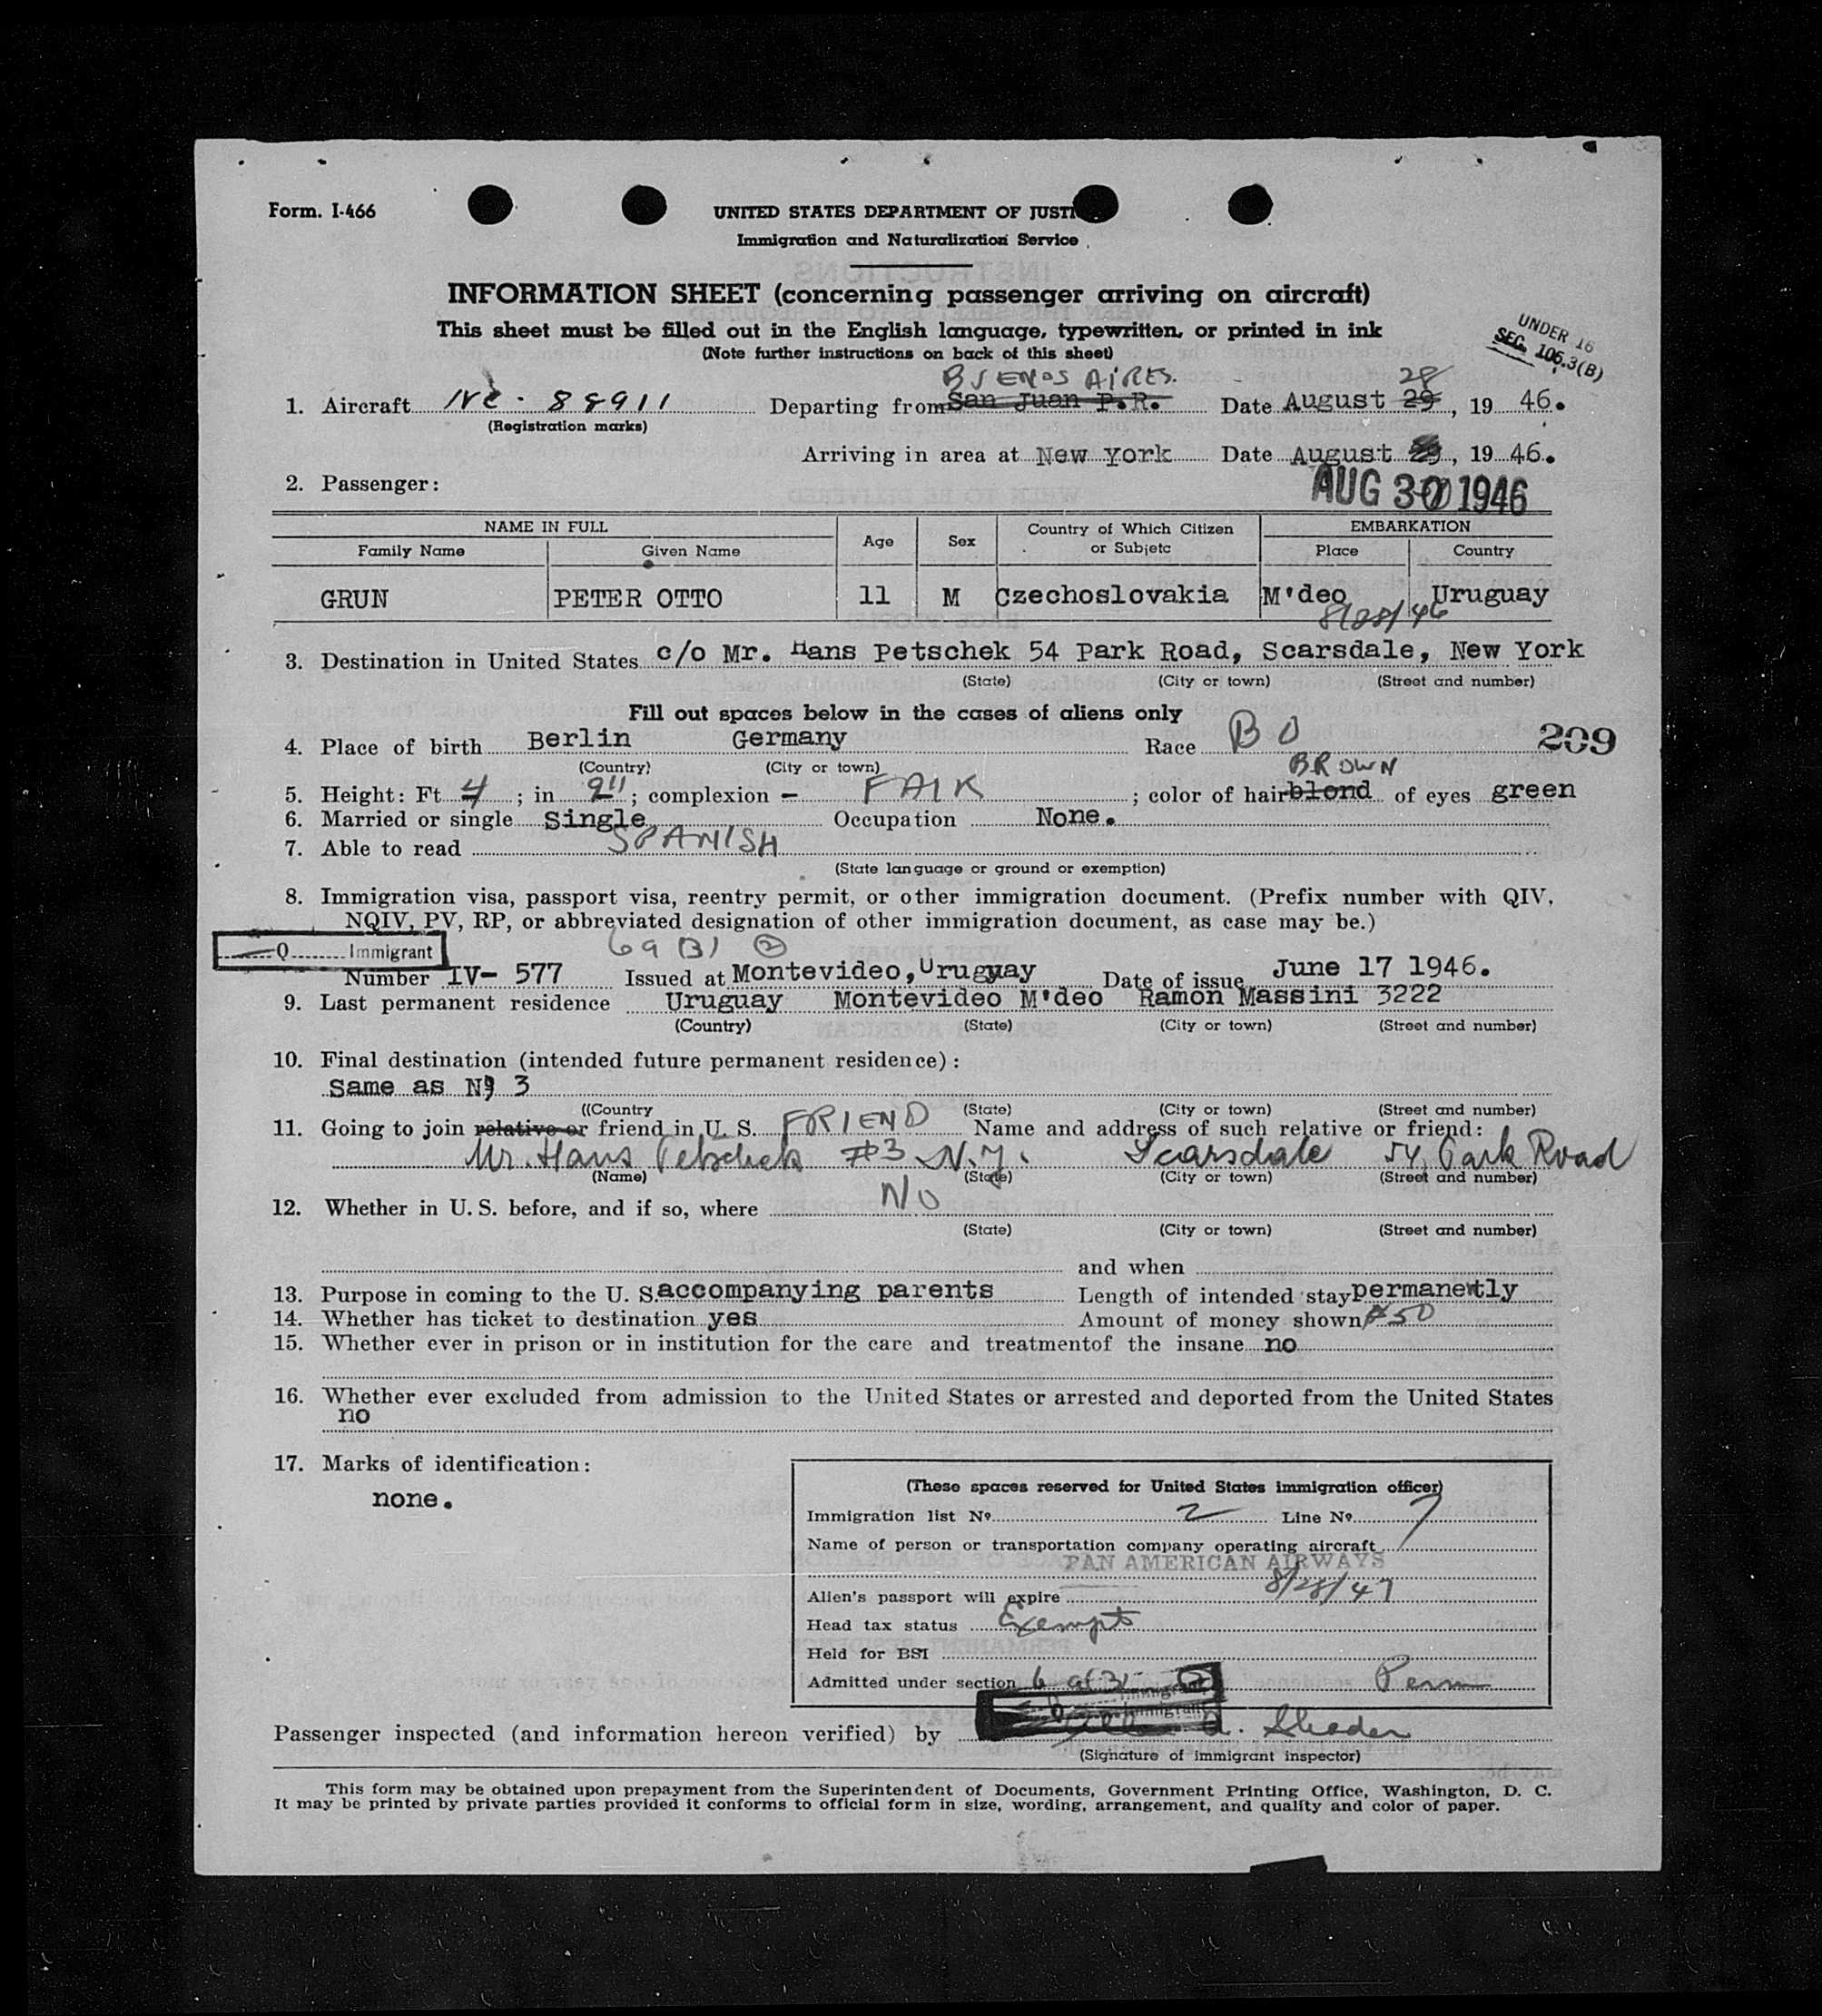 Form. I-466
UNITED STATES DEPARTMENT OF JUSTI
Immigration and Naturalization Service
INFORMATION SHEET (concerning passenger arriving on aircraft)
This sheet must be filled out in the English language, typewritten, or printed in ink
(Note further instructions on back of this sheet)
UNDER 16
SEC. 106.3(B)
BUENOS AIRES. 28
1. Aircraft NC - 88911 Departing from San Juan P.R. Date August 29, 19 46.
(Registration marks)
Arriving in area at New York Date August 29, 19 46.
AUG 30 1946
2. Passenger:
NAME IN FULL Age Sex Country of Which Citizen or Subjetc EMBARKATION
Family Name Given Name Place Country
GRUN PETER OTTO 11 M Czechoslovakia M'deo Uruguay
8/28/46
3. Destination in United States c/o Mr. Hans Petschek 54 Park Road, Scarsdale, New York
(State) (City or town) (Street and number)
Fill out spaces below in the cases of aliens only
4. Place of birth Berlin Germany Race B O 209
(Country) (City or town)
BROWN
5. Height: Ft 4 ; in 9" ; complexion - FAIR ; color of hair blond of eyes green
6. Married or single Single Occupation None.
7. Able to read SPANISH
(State language or ground or exemption)
8. Immigration visa, passport visa, reentry permit, or other immigration document. (Prefix number with QIV,
NQIV, PV, RP, or abbreviated designation of other immigration document, as case may be.)
Q Immigrant 6 a (3) ②
Number IV- 577 Issued at Montevideo, Uruguay Date of issue June 17 1946.
9. Last permanent residence Uruguay Montevideo M'deo Ramon Massini 3222
(Country) (State) (City or town) (Street and number)
10. Final destination (intended future permanent residence):
Same as Nº 3
((Country (State) (City or town) (Street and number)
11. Going to join relative or friend in U. S. FRIEND Name and address of such relative or friend:
Mr. Hans Petschek #3 N.Y. Scarsdale 54, Park Road
(Name) (State) (City or town) (Street and number)
12. Whether in U. S. before, and if so, where NO
(State) (City or town) (Street and number)
and when
13. Purpose in coming to the U. S. accompanying parents Length of intended stay permanently
14. Whether has ticket to destination yes Amount of money shown $50
15. Whether ever in prison or in institution for the care and treatmentof the insane no
16. Whether ever excluded from admission to the United States or arrested and deported from the United States
no
17. Marks of identification:
none.
(These spaces reserved for United States immigration officer)
Immigration list Nº 2 Line Nº 7
Name of person or transportation company operating aircraft
PAN AMERICAN AIRWAYS
Alien's passport will expire 8/28/47
Head tax status Exempt
Held for BSI
Admitted under section 6 a(3) Perm
Immigrant
Immigrant
Passenger inspected (and information hereon verified) by A. Shader
(Signature of immigrant inspector)
This form may be obtained upon prepayment from the Superintendent of Documents, Government Printing Office, Washington, D. C.
It may be printed by private parties provided it conforms to official form in size, wording, arrangement, and quality and color of paper.